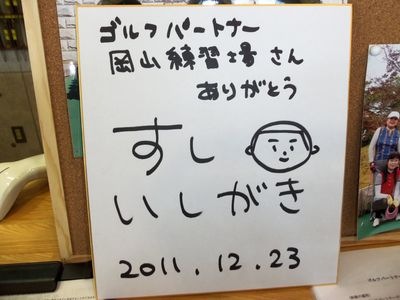 ゴルフパートナー
岡山練習場さん
ありがとう
すし
いしがき
2011.12.23